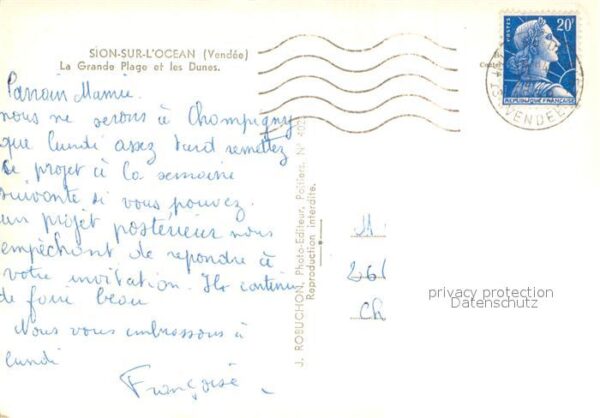 SION-SUR-L'OCEAN (Vendée)
La Grande Plage et les Dunes.
Parrain Mamie.
nous ne serons à Champigny
que lundi assez tard remettez
ce projet à la semaine
suivante si vous pouvez.
un projet postérieur nous
empêchant de repondre à
votre invitation. Il continue
de faire beau
Nous vous embrassons à
lundi
Françoise.
J. ROBUCHON, Photo-Editeur, Poitiers, N° 402
Reproduction interdite.
POSTES 20F
REPUBLIQUE FRANÇAISE
VENDEE
M.
26
Ch
privacy protection
Datenschutz